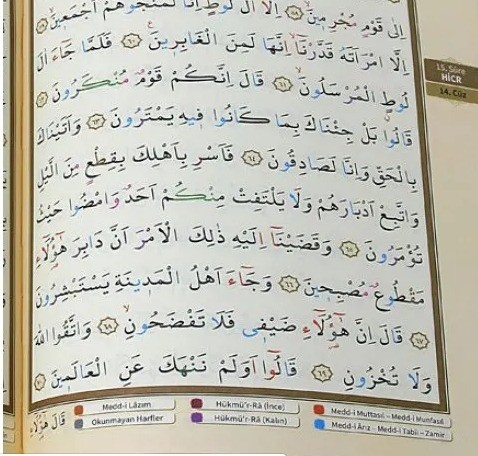 اِلٰى قَوْمٍ مُجْرِمٖينَۙ ﴿٥٨﴾ اِلَّٓا اٰلَ لُوطٍۜ اِنَّا لَمُنَجُّوهُمْ اَجْمَعٖينَۙ ﴿٥٩﴾
اِلَّا امْرَاَتَهُ قَدَّرْنَٓاۙ اِنَّهَا لَمِنَ الْغَابِرٖينَ ﴿٦٠﴾ فَلَمَّا جَٓاءَ اٰلَ
لُوطٍ الْمُرْسَلُونَۙ ﴿٦١﴾ قَالَ اِنَّكُمْ قَوْمٌ مُنْكَرُونَ ﴿٦٢﴾
قَالُوا بَلْ جِئْنَاكَ بِمَا كَانُوا فٖيهِ يَمْتَرُونَ ﴿٦٣﴾ وَاَتَيْنَاكَ
بِالْحَقِّ وَاِنَّا لَصَادِقُونَ ﴿٦٤﴾ فَاَسْرِ بِاَهْلِكَ بِقِطْعٍ مِنَ الَّيْلِ
وَاتَّبِعْ اَدْبَارَهُمْ وَلَا يَلْتَفِتْ مِنْكُمْ اَحَدٌ وَامْضُوا حَيْثُ
تُؤْمَرُونَ ﴿٦٥﴾ وَقَضَيْنَٓا اِلَيْهِ ذٰلِكَ الْاَمْرَ اَنَّ دَابِرَ هٰٓؤُ۬لَٓاءِ
مَقْطُوعٌ مُصْبِحٖينَ ﴿٦٦﴾ وَجَٓاءَ اَهْلُ الْمَدٖينَةِ يَسْتَبْشِرُونَ
﴿٦٧﴾ قَالَ اِنَّ هٰٓؤُ۬لَٓاءِ ضَيْفٖى فَلَا تَفْضَحُونِۙ ﴿٦٨﴾ وَاتَّقُوا اللّٰهَ
وَلَا تُخْزُونِ ﴿٦٩﴾ قَالُٓوا اَوَلَمْ نَنْهَكَ عَنِ الْعَالَمٖينَ ﴿٧٠﴾
قَالَ هٰٓؤُ۬لَٓاءِ
15. Sûre
HİCR
14. Cüz
Medd-i Lâzım
Hükmü'r-Râ (İnce)
Medd-i Muttasıl - Medd-i Munfasıl
Okunmayan Harfler
Hükmü'r-Râ (Kalın)
Medd-i Ârız - Medd-i Tabiî - Zamir